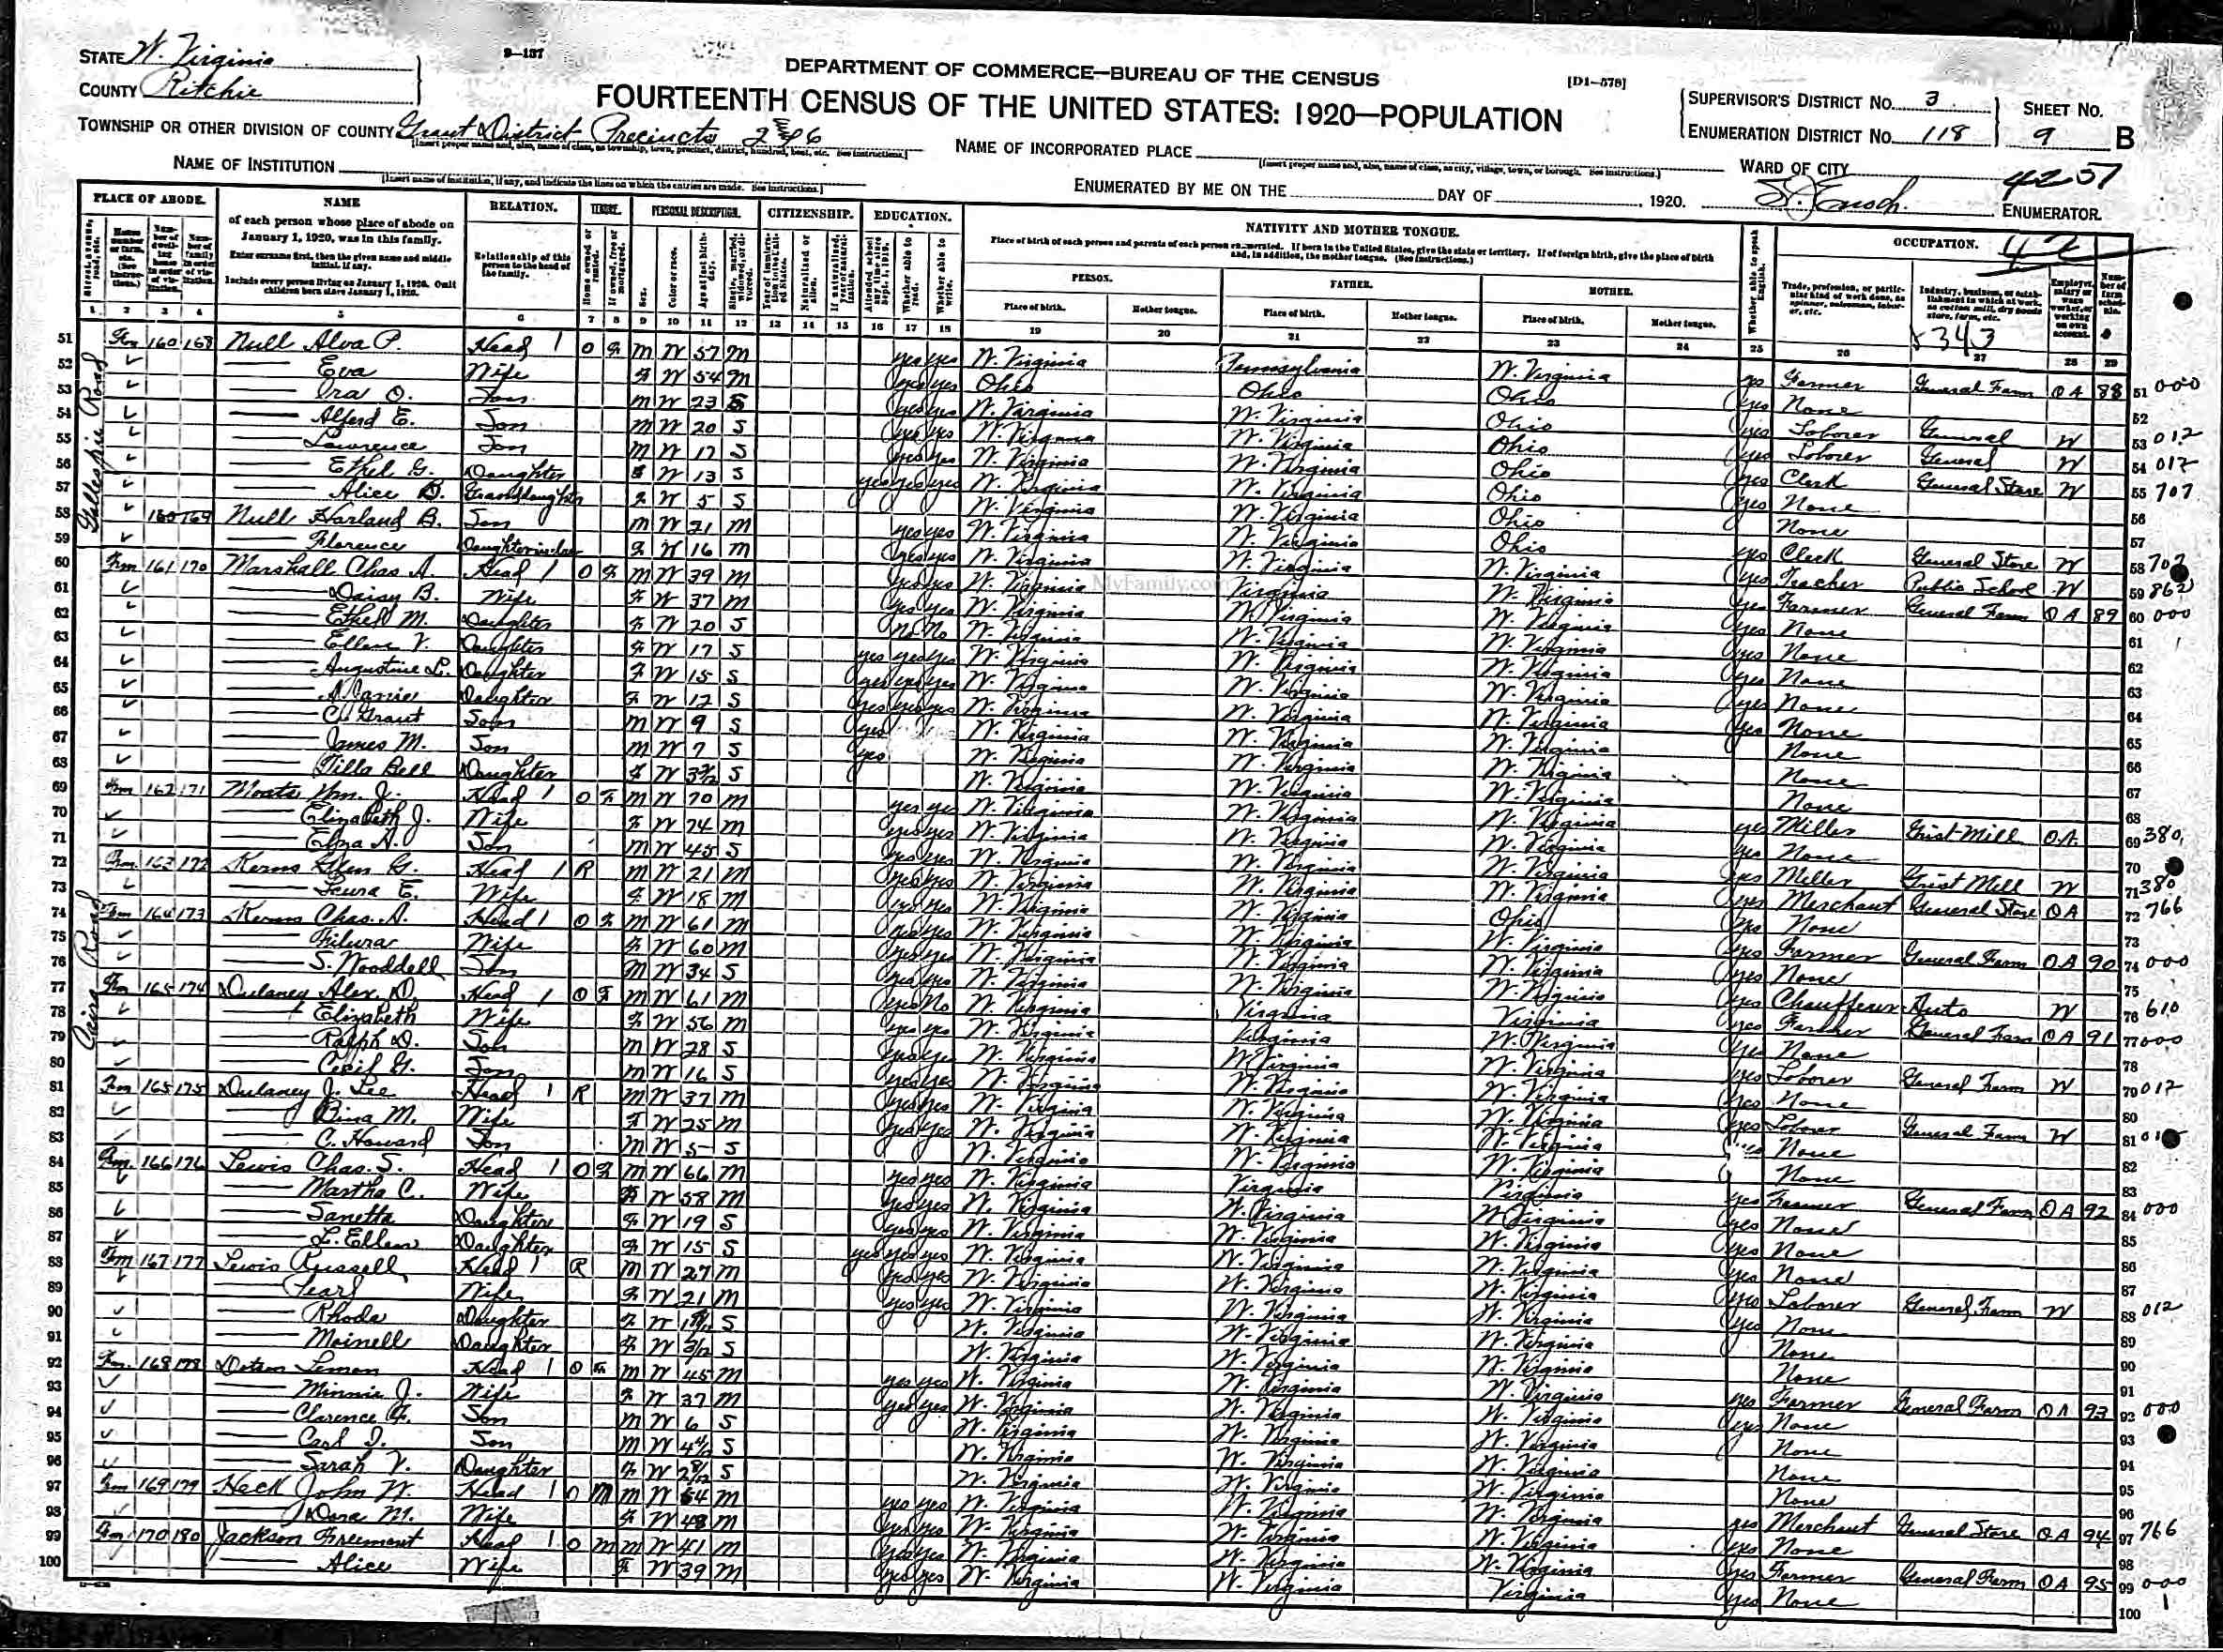 STATE W. Virginia
COUNTY Ritchie
9—137
DEPARTMENT OF COMMERCE—BUREAU OF THE CENSUS
[D1—578]
FOURTEENTH CENSUS OF THE UNITED STATES: 1920—POPULATION
SUPERVISOR'S DISTRICT NO. 3
ENUMERATION DISTRICT NO. 118
SHEET NO.
9 B
TOWNSHIP OR OTHER DIVISION OF COUNTY Grant District Precincts 2 and 6
NAME OF INCORPORATED PLACE
WARD OF CITY
NAME OF INSTITUTION
ENUMERATED BY ME ON THE DAY OF , 1920. Enoch. ENUMERATOR.
4257
PLACE OF ABODE. NAME RELATION. TENURE. PERSONAL DESCRIPTION. CITIZENSHIP. EDUCATION. NATIVITY AND MOTHER TONGUE. OCCUPATION.
of each person whose place of abode on January 1, 1920, was in this family.
Enter surname first, then the given name and middle initial, if any.
Include every person living on January 1, 1920. Omit children born since January 1, 1920.
Relationship of this person to the head of the family.
PERSON. FATHER. MOTHER.
Place of birth. Mother tongue. Place of birth. Mother tongue. Place of birth. Mother tongue.
Gillespie Road
51 Fm 160 168 Null Alva P. Head 1 O F M W 57 M yes yes W. Virginia Pennsylvania W. Virginia yes Farmer General Farm OA 88 51 000
52 Eva Wife F W 54 M yes yes Ohio Ohio Ohio yes None 52
53 Ora O. Son M W 23 S yes yes W. Virginia W. Virginia Ohio yes Laborer General W 53 012
54 Alferd E. Son M W 20 S yes yes W. Virginia W. Virginia Ohio yes Laborer General W 54 012
55 Lawrence Son M W 17 S yes yes W. Virginia W. Virginia Ohio yes Clerk General Store W 55 707
56 Ethel G. Daughter W 13 S yes yes yes W. Virginia W. Virginia Ohio yes None 56
57 Alice Granddaughter F W 5 S W. Virginia W. Virginia Ohio None 57
58 160 169 Null Harland B. Son M W 21 M yes yes W. Virginia W. Virginia Ohio yes Clerk General Store W 58 707
59 Florence Daughterinlaw F W 16 M yes yes W. Virginia W. Virginia W. Virginia yes Teacher Public School W 59 862
60 Fm 161 170 Marshall Chas A. Head 1 O F M W 39 M yes yes W. Virginia Virginia W. Virginia yes Farmer General Farm OA 89 60 000
61 Daisy B. Wife F W 37 M yes yes W. Virginia W. Virginia W. Virginia yes None 61
62 Ethel M. Daughter F W 20 S No No W. Virginia W. Virginia W. Virginia yes None 62
63 Ellen V. Daughter F W 17 S yes yes yes W. Virginia W. Virginia W. Virginia yes None 63
64 Augustine L. Daughter F W 15 S yes yes yes W. Virginia W. Virginia W. Virginia yes None 64
65 Daughter F W 12 S yes yes yes W. Virginia W. Virginia W. Virginia yes None 65
66 C. Grant Son M W 9 S yes W. Virginia W. Virginia W. Virginia None 66
67 James M. Son M W 7 S yes W. Virginia W. Virginia W. Virginia None 67
68 Bell Daughter F W S W. Virginia W. Virginia W. Virginia None 68
69 Fm 162 171 Moats Wm. J. Head 1 O F M W 70 M yes yes W. Virginia W. Virginia W. Virginia yes Miller Grist Mill OA 69 380
70 Elizabeth J. Wife F W 74 M yes yes W. Virginia W. Virginia W. Virginia yes None 70
71 Elza A. Son M W 45 S yes yes W. Virginia W. Virginia W. Virginia yes Miller Grist Mill W 71 380
Cairo Road
72 Fm 163 172 Kerns Glen G. Head 1 R M W 21 M yes yes W. Virginia W. Virginia W. Virginia yes Merchant General Store OA 72 766
73 Leura E. Wife F W 18 M yes yes W. Virginia W. Virginia Ohio yes None 73
74 Fm 164 173 Kerns Chas. A. Head 1 O F M W 61 M yes yes W. Virginia W. Virginia W. Virginia yes Farmer General Farm OA 90 74 000
75 Wife F W 60 M yes yes W. Virginia W. Virginia W. Virginia yes None 75
76 S. Wooddell Son M W 34 S yes yes W. Virginia W. Virginia W. Virginia yes Chauffeur Auto W 76 610
77 Fm 165 174 Dulaney Alex. D. Head 1 O F M W 61 M yes No W. Virginia Virginia Virginia yes Farmer General Farm OA 91 77 000
78 Elizabeth Wife F W 56 M yes yes W. Virginia Virginia W. Virginia yes None 78
79 Ralph D. Son M W 28 S yes yes W. Virginia W. Virginia W. Virginia yes Laborer General Farm W 79 012
80 Cecil G. Son M W 16 S yes yes W. Virginia W. Virginia W. Virginia yes None 80
81 Fm 165 175 Dulaney J. Lee Head 1 R M W 37 M yes yes W. Virginia W. Virginia W. Virginia yes Laborer General Farm W 81
82 M. Wife F W 25 M yes yes W. Virginia W. Virginia W. Virginia None 82
83 C. Howard Son M W 5 S W. Virginia W. Virginia W. Virginia None 83
84 Fm. 166 176 Lewis Chas. S. Head 1 O F M W 66 M yes yes W. Virginia Virginia Virginia yes Farmer General Farm OA 92 84 000
85 Martha C. Wife F W 58 M yes yes W. Virginia W. Virginia W. Virginia yes None 85
86 Sanetta Daughter F W 19 S yes yes W. Virginia W. Virginia W. Virginia yes None 86
87 L. Ellen Daughter F W 15 S yes yes yes W. Virginia W. Virginia W. Virginia yes None 87
88 Fm 167 177 Lewis Russell Head 1 R M W 27 M yes yes W. Virginia W. Virginia W. Virginia yes Laborer General Farm W 88 012
89 Pearl Wife F W 21 M yes yes W. Virginia W. Virginia W. Virginia yes None 89
90 Rhoda Daughter F W S W. Virginia W. Virginia W. Virginia None 90
91 Moinell Daughter F W 3/12 S W. Virginia W. Virginia W. Virginia None 91
92 Fm. 168 178 Dotson Lemon Head 1 O F M W 45 M yes yes W. Virginia W. Virginia W. Virginia yes Farmer General Farm OA 93 92 000
93 Minnie J. Wife F W 37 M yes yes W. Virginia W. Virginia W. Virginia yes None 93
94 Clarence F. Son M W 6 S W. Virginia W. Virginia W. Virginia None 94
95 Carl D. Son M W S W. Virginia W. Virginia W. Virginia None 95
96 Sarah V. Daughter F W S W. Virginia W. Virginia W. Virginia None 96
97 Fm 169 179 Heck John W. Head 1 O M M W 54 M yes yes W. Virginia W. Virginia W. Virginia yes Merchant General Store OA 94 97 766
98 Dora M. Wife F W 48 M yes yes W. Virginia W. Virginia W. Virginia yes None 98
99 Fm 170 180 Jackson Freemont Head 1 O M M W 41 M yes yes W. Virginia W. Virginia W. Virginia yes Farmer General Farm OA 95 99 000
100 Alice Wife F W 39 M yes yes W. Virginia W. Virginia Virginia yes None 100
MyFamily.com